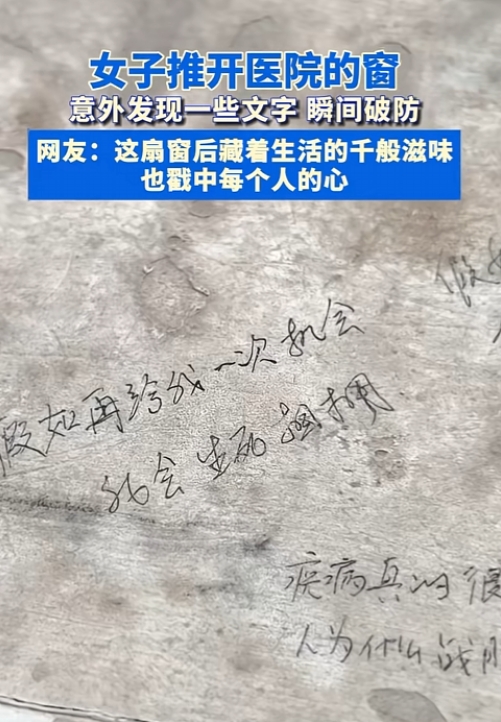 女子推开医院的窗
意外发现一些文字 瞬间破防
网友：这扇窗后藏着生活的千般滋味
也戳中每个人的心
假
假如再给我一次机会
我会生死相拥
疾病真的很
人为什么战